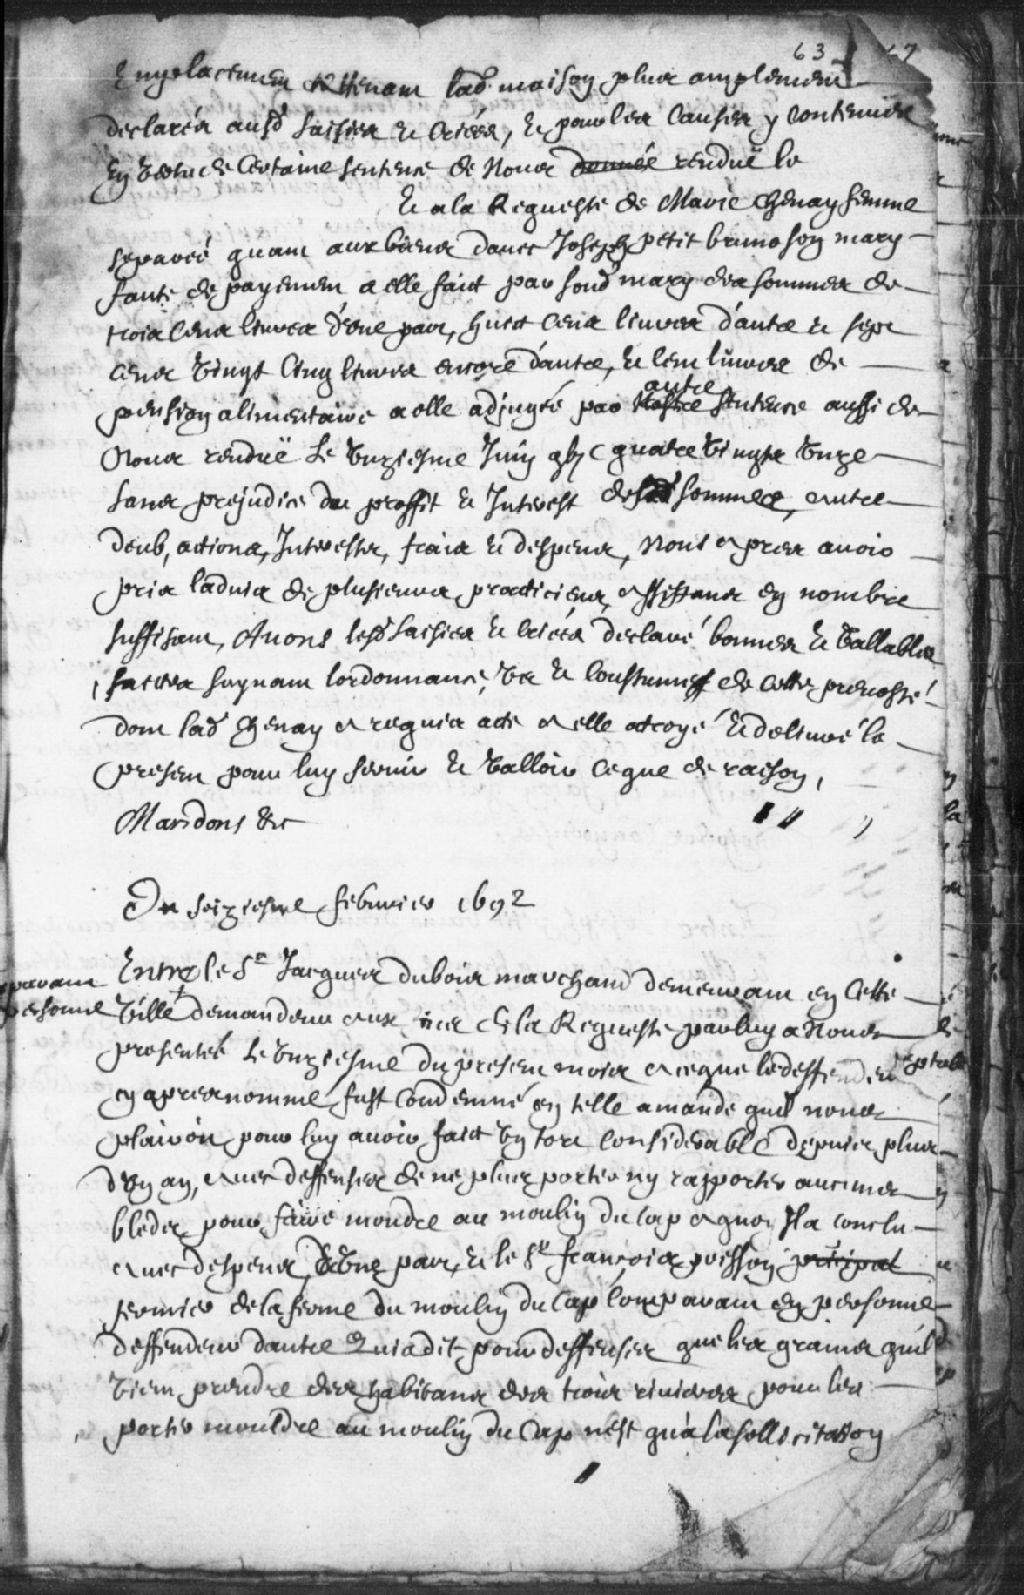 63
Emplacement & tenant lad. maison plus amplement
declarés ausd saisies et criées, et pour les causes y contenues
En vertu de certaine sentence de Nous donnée rendüe le
Et a la Requeste de Marie Chenay femme
separeé quant aux biens davec Joseph petit bruno son mary
faute de payement a elle fait par sond mary des sommes de
trois cens livres d'une part, huict cens livres d'autre et sept
cens vingt cinq livres encore d'autre, et cent livres de
pension alimentaire a elle adjugée par autre sentence aussi de
Nous rendüe Le unziesme Juin quatre vingts unze
sans prejudice du proffit et Interest desd sommes, autre
deub, actions, Interests, frais et despens, Nous apres avoir
pris ladvis de plusieurs practiciens assistans en nombre
suffisant, Avons lesd saisies et criées declaré bonnes et vallables
faittes suyvant lordonnance, us et coustumes de cette prevosté
dont lad Chenay a requis acte a elle octroyé et delivré le
present pour luy servir et valloir ce que de raison,
Mandons &c
Du seiziesme febvrier 1692
Entre le Sr Jacques dubois marchand demeurant en Cette
parant
personne
ville demandeur aux fins de la Requeste par luy a Nous
presenteé Le unziesme du present mois a ce que le deffendeur
cy apres nommé fust condemné en telle amande quil nous
plairoit pour luy avoir faict un tort considerable depuis plus
d'un an, avec deffenses de ne plus porter ny rapporter aucunes
bledes pour faire moudre au moulin du Cap a quoy Il a conclu
avec despens, d'une part, et le Sr françois poisson principal
fermier de la ferme du moulin du Cap Comparant en personne
deffendeur dautre Qui a dit pour deffenses que les graines quil
vient prendre des habitans des trois rivieres pour les
porter mouldre au moulin du Cap nest qu'a la sollicitation